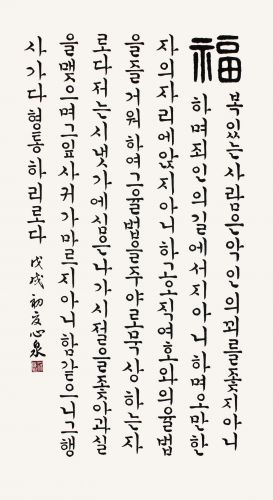 福
복있는사람은악인의꾀를좇지아니
하며죄인의길에서지아니하며오만한
자의자리에앉지아니하고오직여호와의율법
을즐거워하여그율법을주야로묵상하는자
로다저는시냇가에심은나가시절을좇아과실
을맺으며그잎사귀가마르지아니함같으니그행
사가다형통하리로다 戊戌初夏心泉